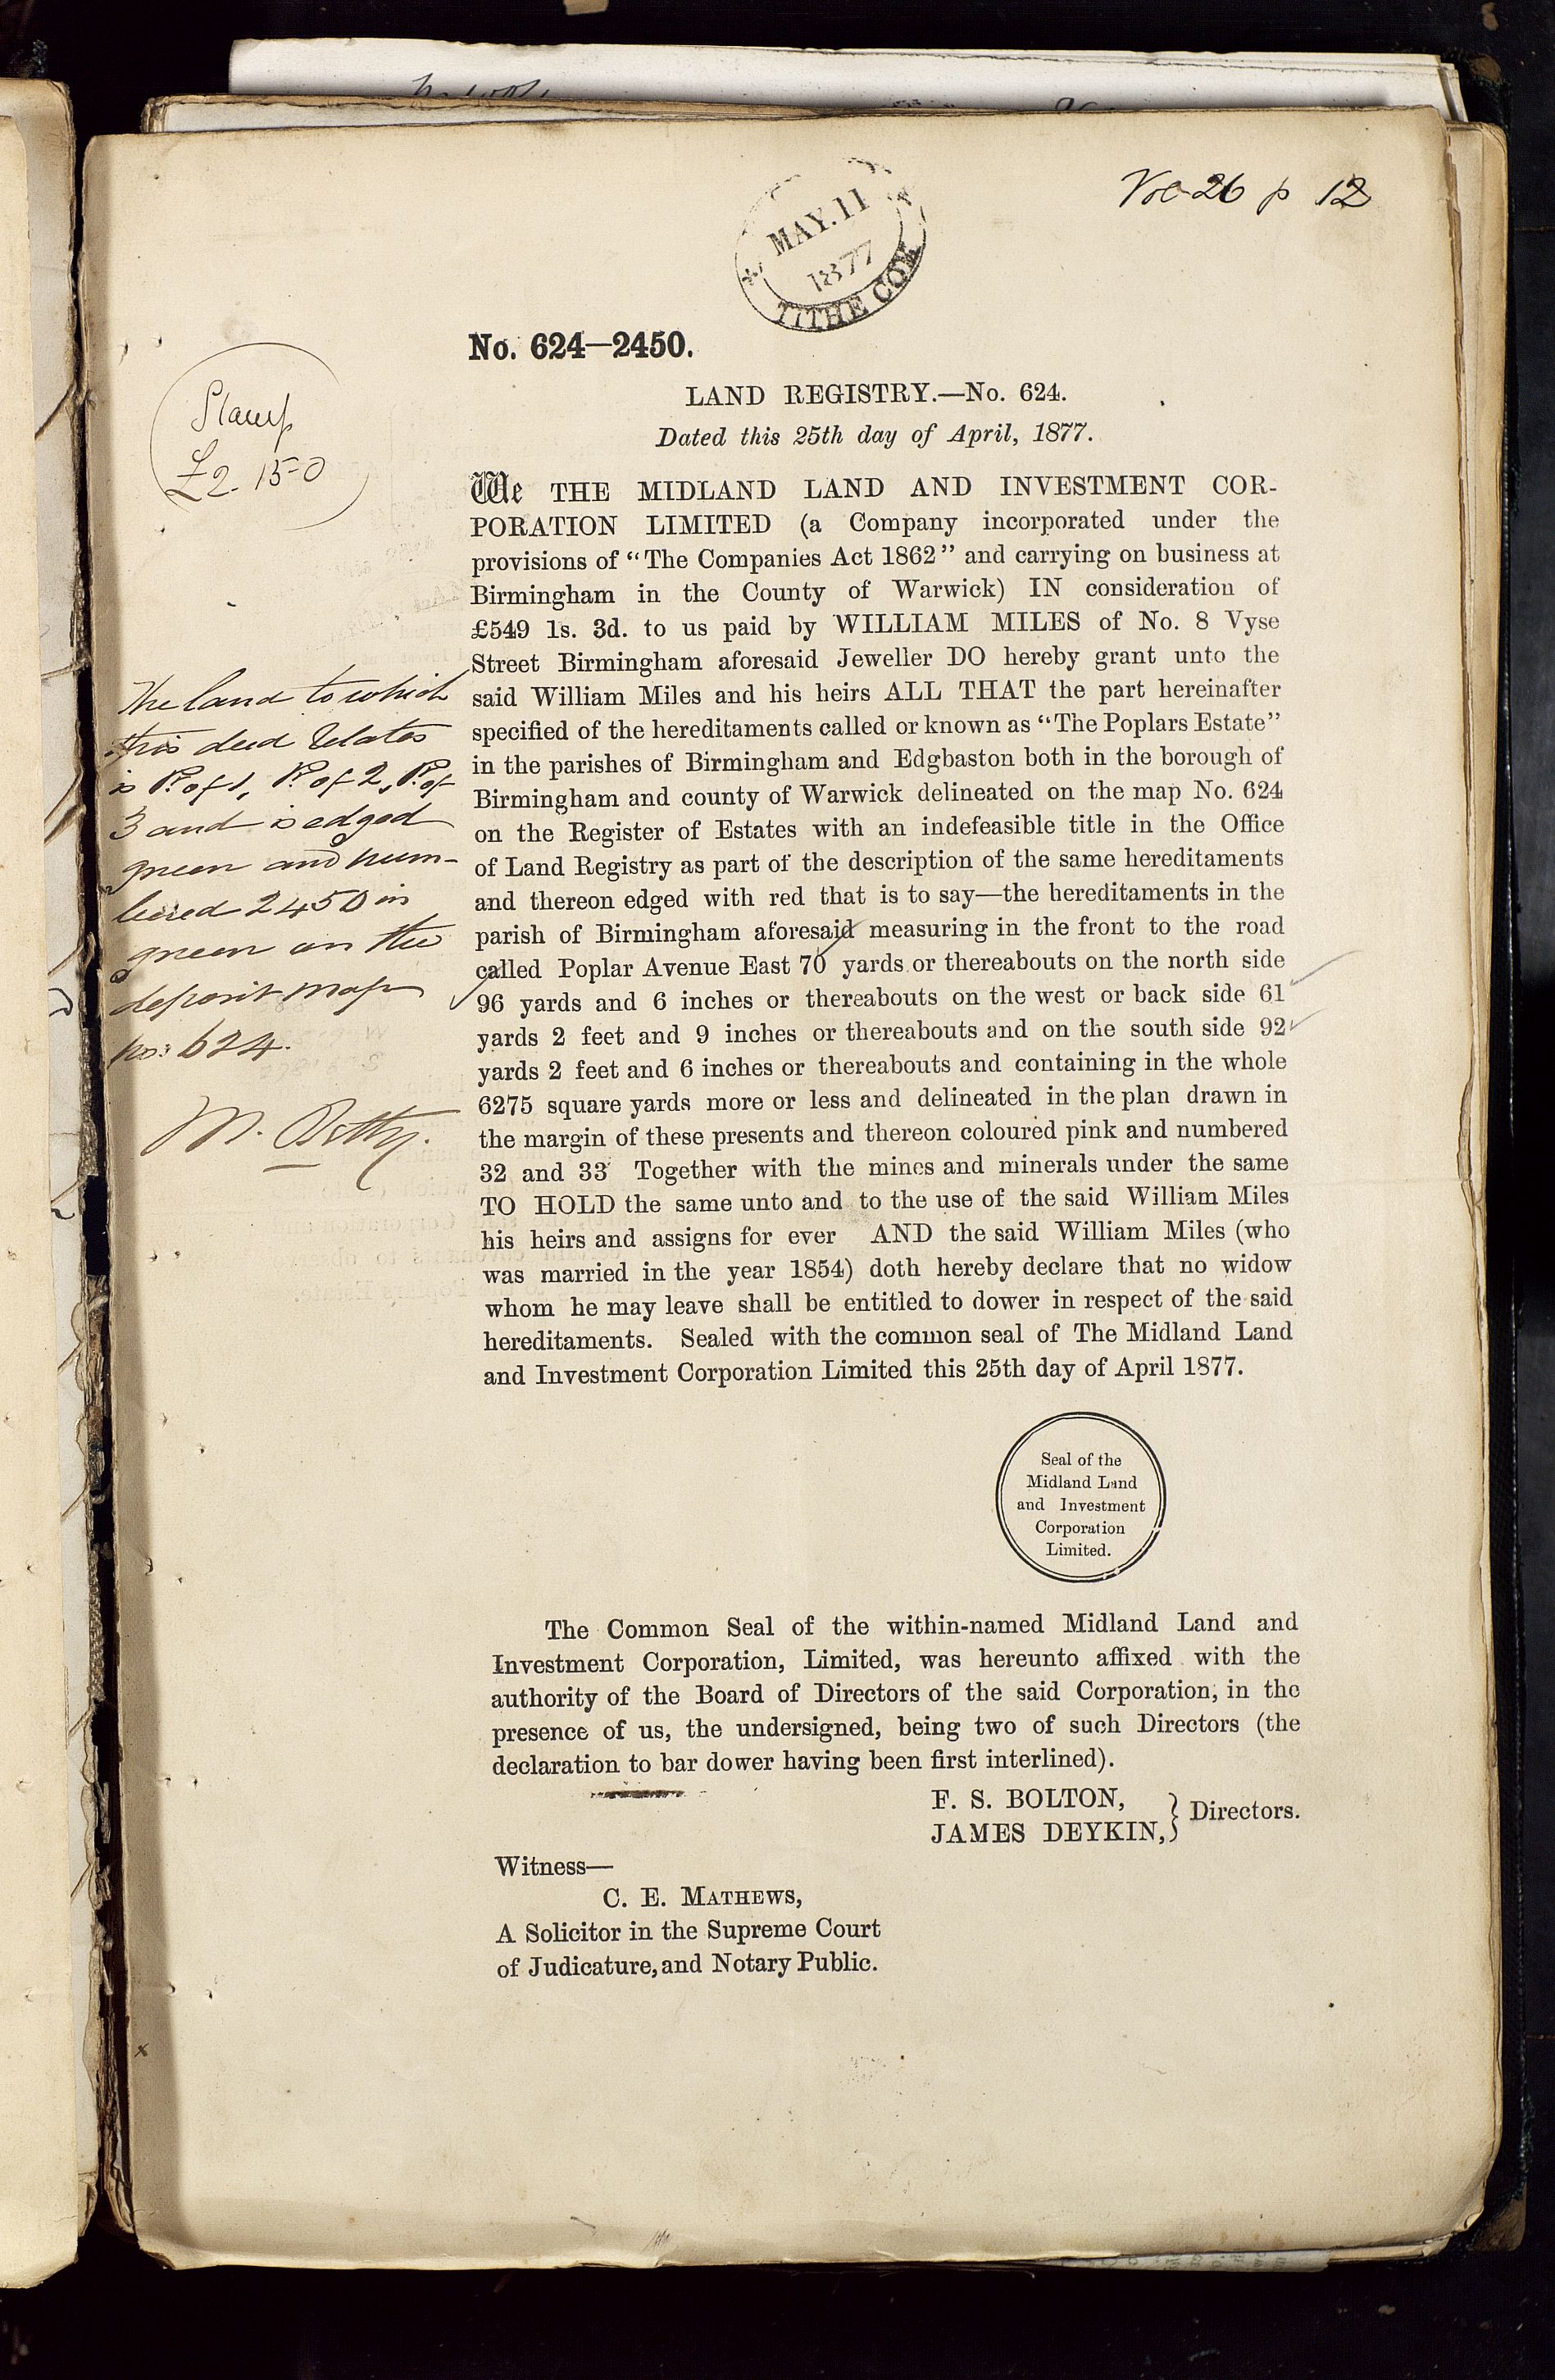 Vol 26 p 12
MAY.11
1877
TITHE COM
No. 624—2450.
LAND REGISTRY.—No. 624.
Dated this 25th day of April, 1877.
Stamp
£2. 15-0
We THE MIDLAND LAND AND INVESTMENT COR-
PORATION LIMITED (a Company incorporated under the
provisions of "The Companies Act 1862" and carrying on business at
Birmingham in the County of Warwick) IN consideration of
£549 1s. 3d. to us paid by WILLIAM MILES of No. 8 Vyse
Street Birmingham aforesaid Jeweller DO hereby grant unto the
said William Miles and his heirs ALL THAT the part hereinafter
specified of the hereditaments called or known as "The Poplars Estate"
in the parishes of Birmingham and Edgbaston both in the borough of
Birmingham and county of Warwick delineated on the map No. 624
on the Register of Estates with an indefeasible title in the Office
of Land Registry as part of the description of the same hereditaments
and thereon edged with red that is to say—the hereditaments in the
parish of Birmingham aforesaid measuring in the front to the road
called Poplar Avenue East 70 yards or thereabouts on the north side
96 yards and 6 inches or thereabouts on the west or back side 61
yards 2 feet and 9 inches or thereabouts and on the south side 92
yards 2 feet and 6 inches or thereabouts and containing in the whole
6275 square yards more or less and delineated in the plan drawn in
the margin of these presents and thereon coloured pink and numbered
32 and 33 Together with the mines and minerals under the same
TO HOLD the same unto and to the use of the said William Miles
his heirs and assigns for ever AND the said William Miles (who
was married in the year 1854) doth hereby declare that no widow
whom he may leave shall be entitled to dower in respect of the said
hereditaments. Sealed with the common seal of The Midland Land
and Investment Corporation Limited this 25th day of April 1877.
The land to which
this deed relates
is Pt. of 1, Pt. of 2, Pt. of
3 and is edged
green and num-
bered 2450 in
green on the
deposit map
no: 624.
M.
Seal of the
Midland Land
and Investment
Corporation
Limited.
The Common Seal of the within-named Midland Land and
Investment Corporation, Limited, was hereunto affixed with the
authority of the Board of Directors of the said Corporation, in the
presence of us, the undersigned, being two of such Directors (the
declaration to bar dower having been first interlined).
F. S. BOLTON,
JAMES DEYKIN, } Directors.
Witness—
C. E. MATHEWS,
A Solicitor in the Supreme Court
of Judicature, and Notary Public.